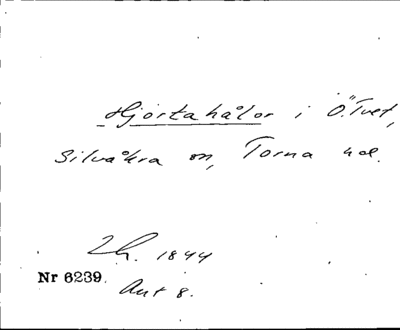 Hjortahålor i Ö. Tvet,
Silvåkra sn, Torna hd.
Lh. 1844
Nr 6239.
Ant 8.